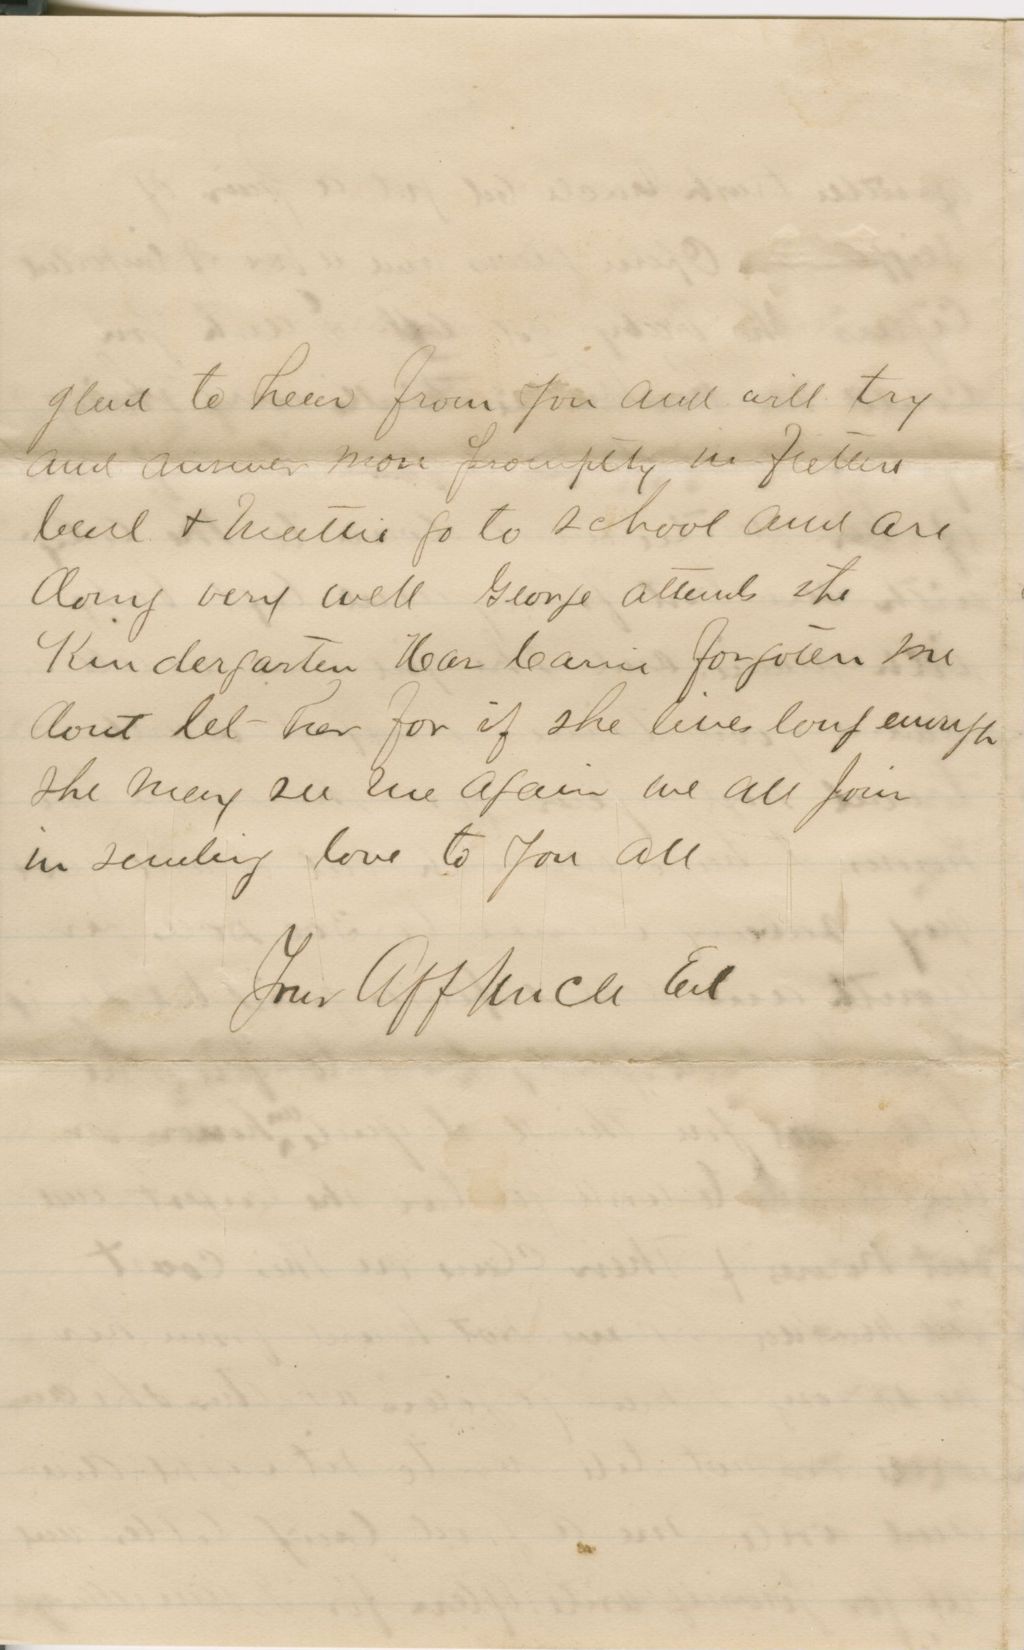 glad to hear from you and will try
and answer more promptly in
Carl & Mattie go to school and are
doing very well George attends the
Kindergarten Has Carrie forgoten me
dont let her for if she lives long enough
she may see me again we all join
in sending love to you all
Your Aff Uncle Ed